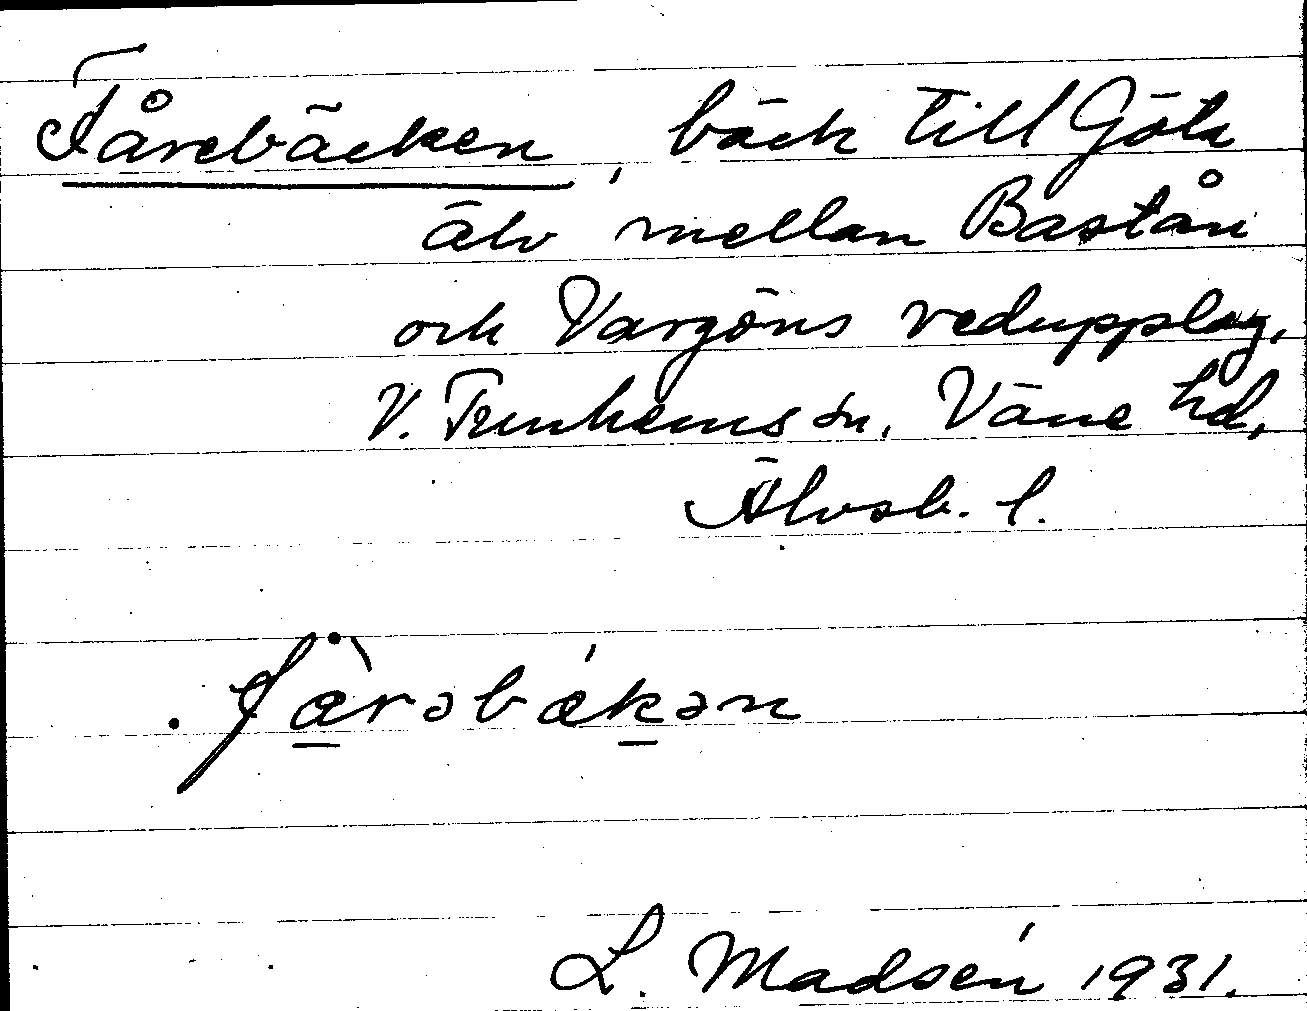 Fårebäcken, bäck till Göta
älv mellan Bastån
och Vargöns vedupplag,
V. Tunhems sn, Väne hd,
Älvsb. l.
L. Madsén 1931.